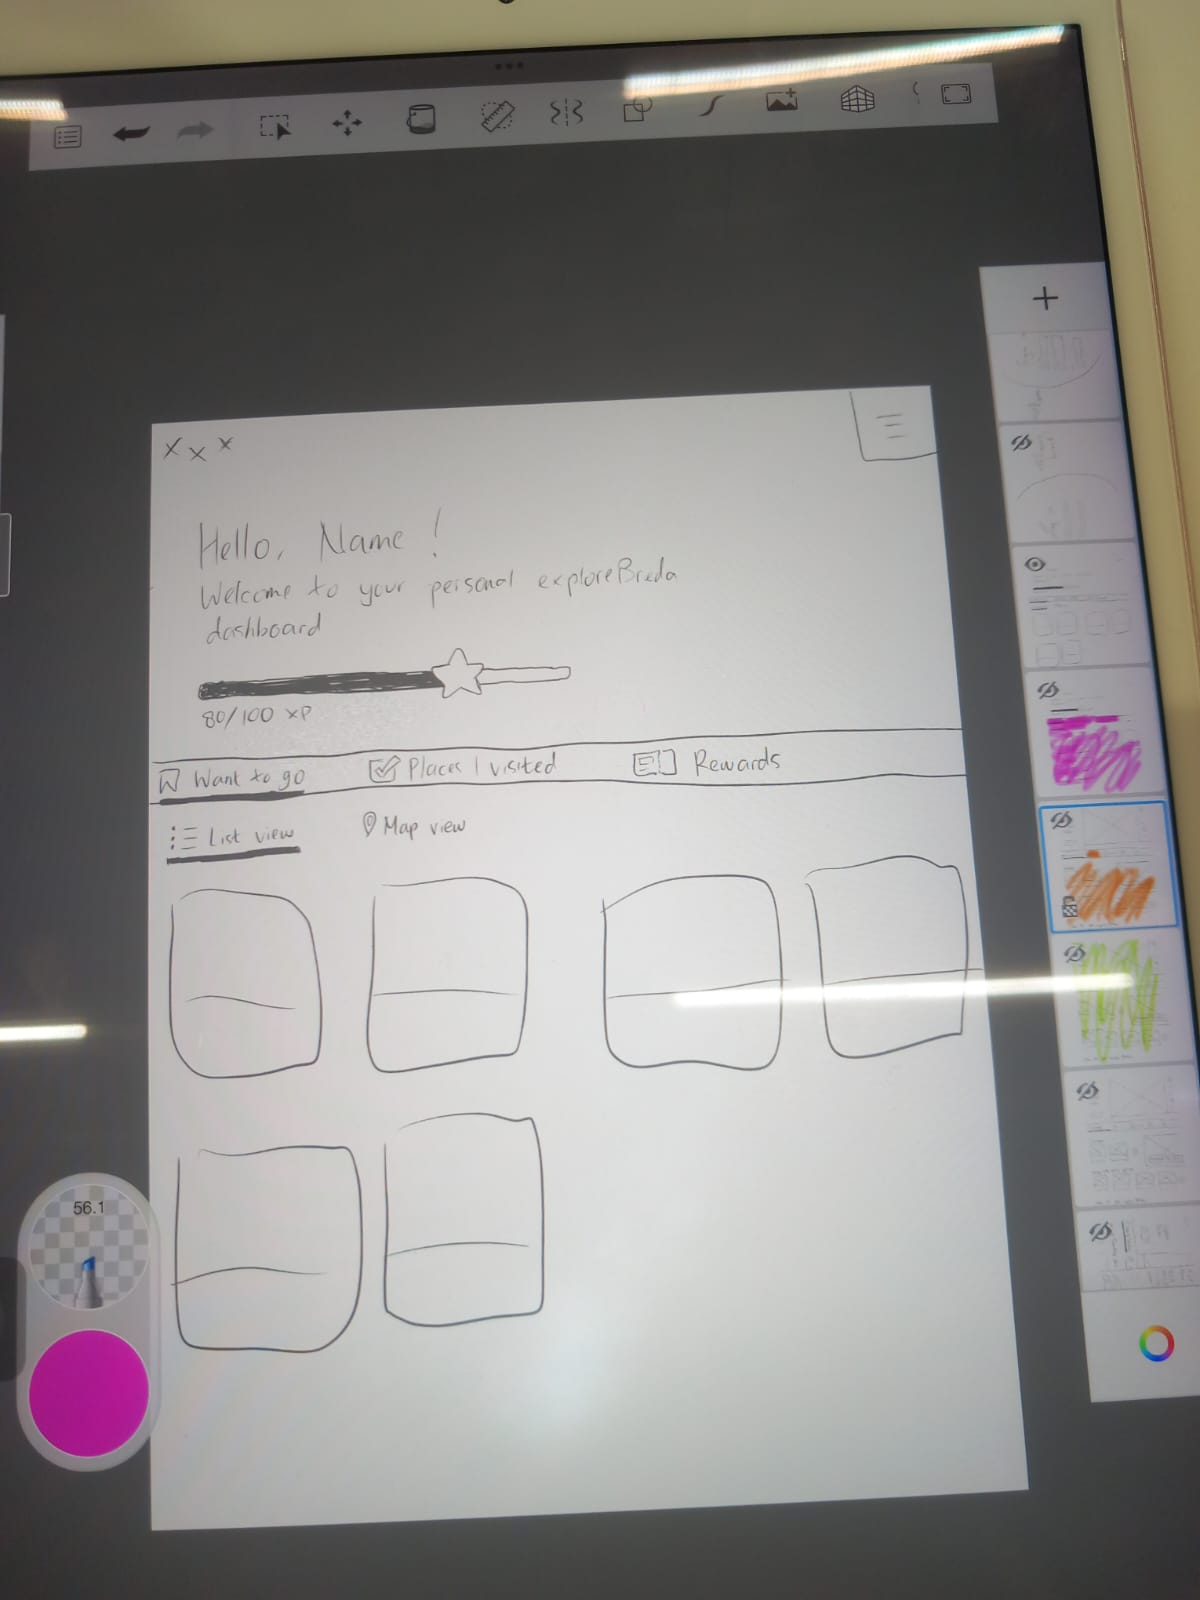 x x x
Hello, Name !
Welcome to your personal exploreBreda
dashboard
80/100 XP
Want to go Places I visited Rewards
List view Map view
56.1